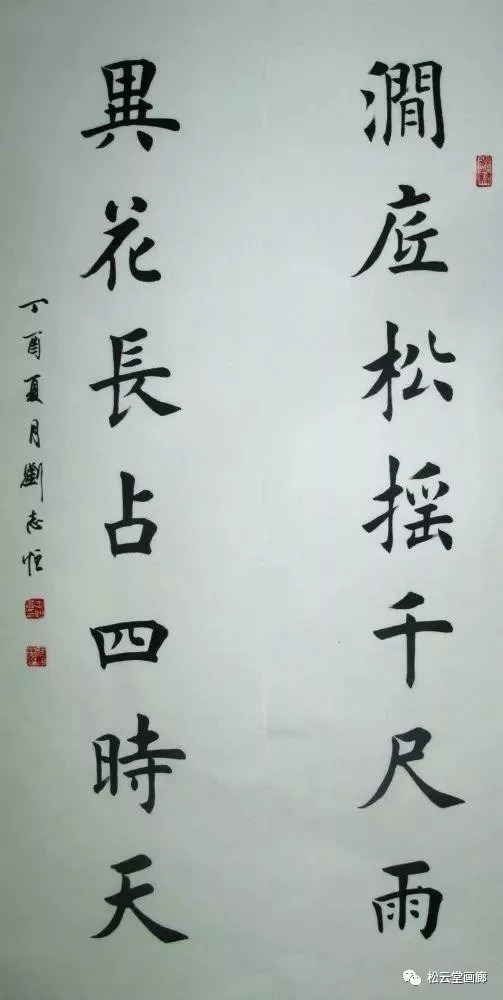 澗底松摇千尺雨
異花長占四時天
丁酉夏月劉志恒
松云堂画廊